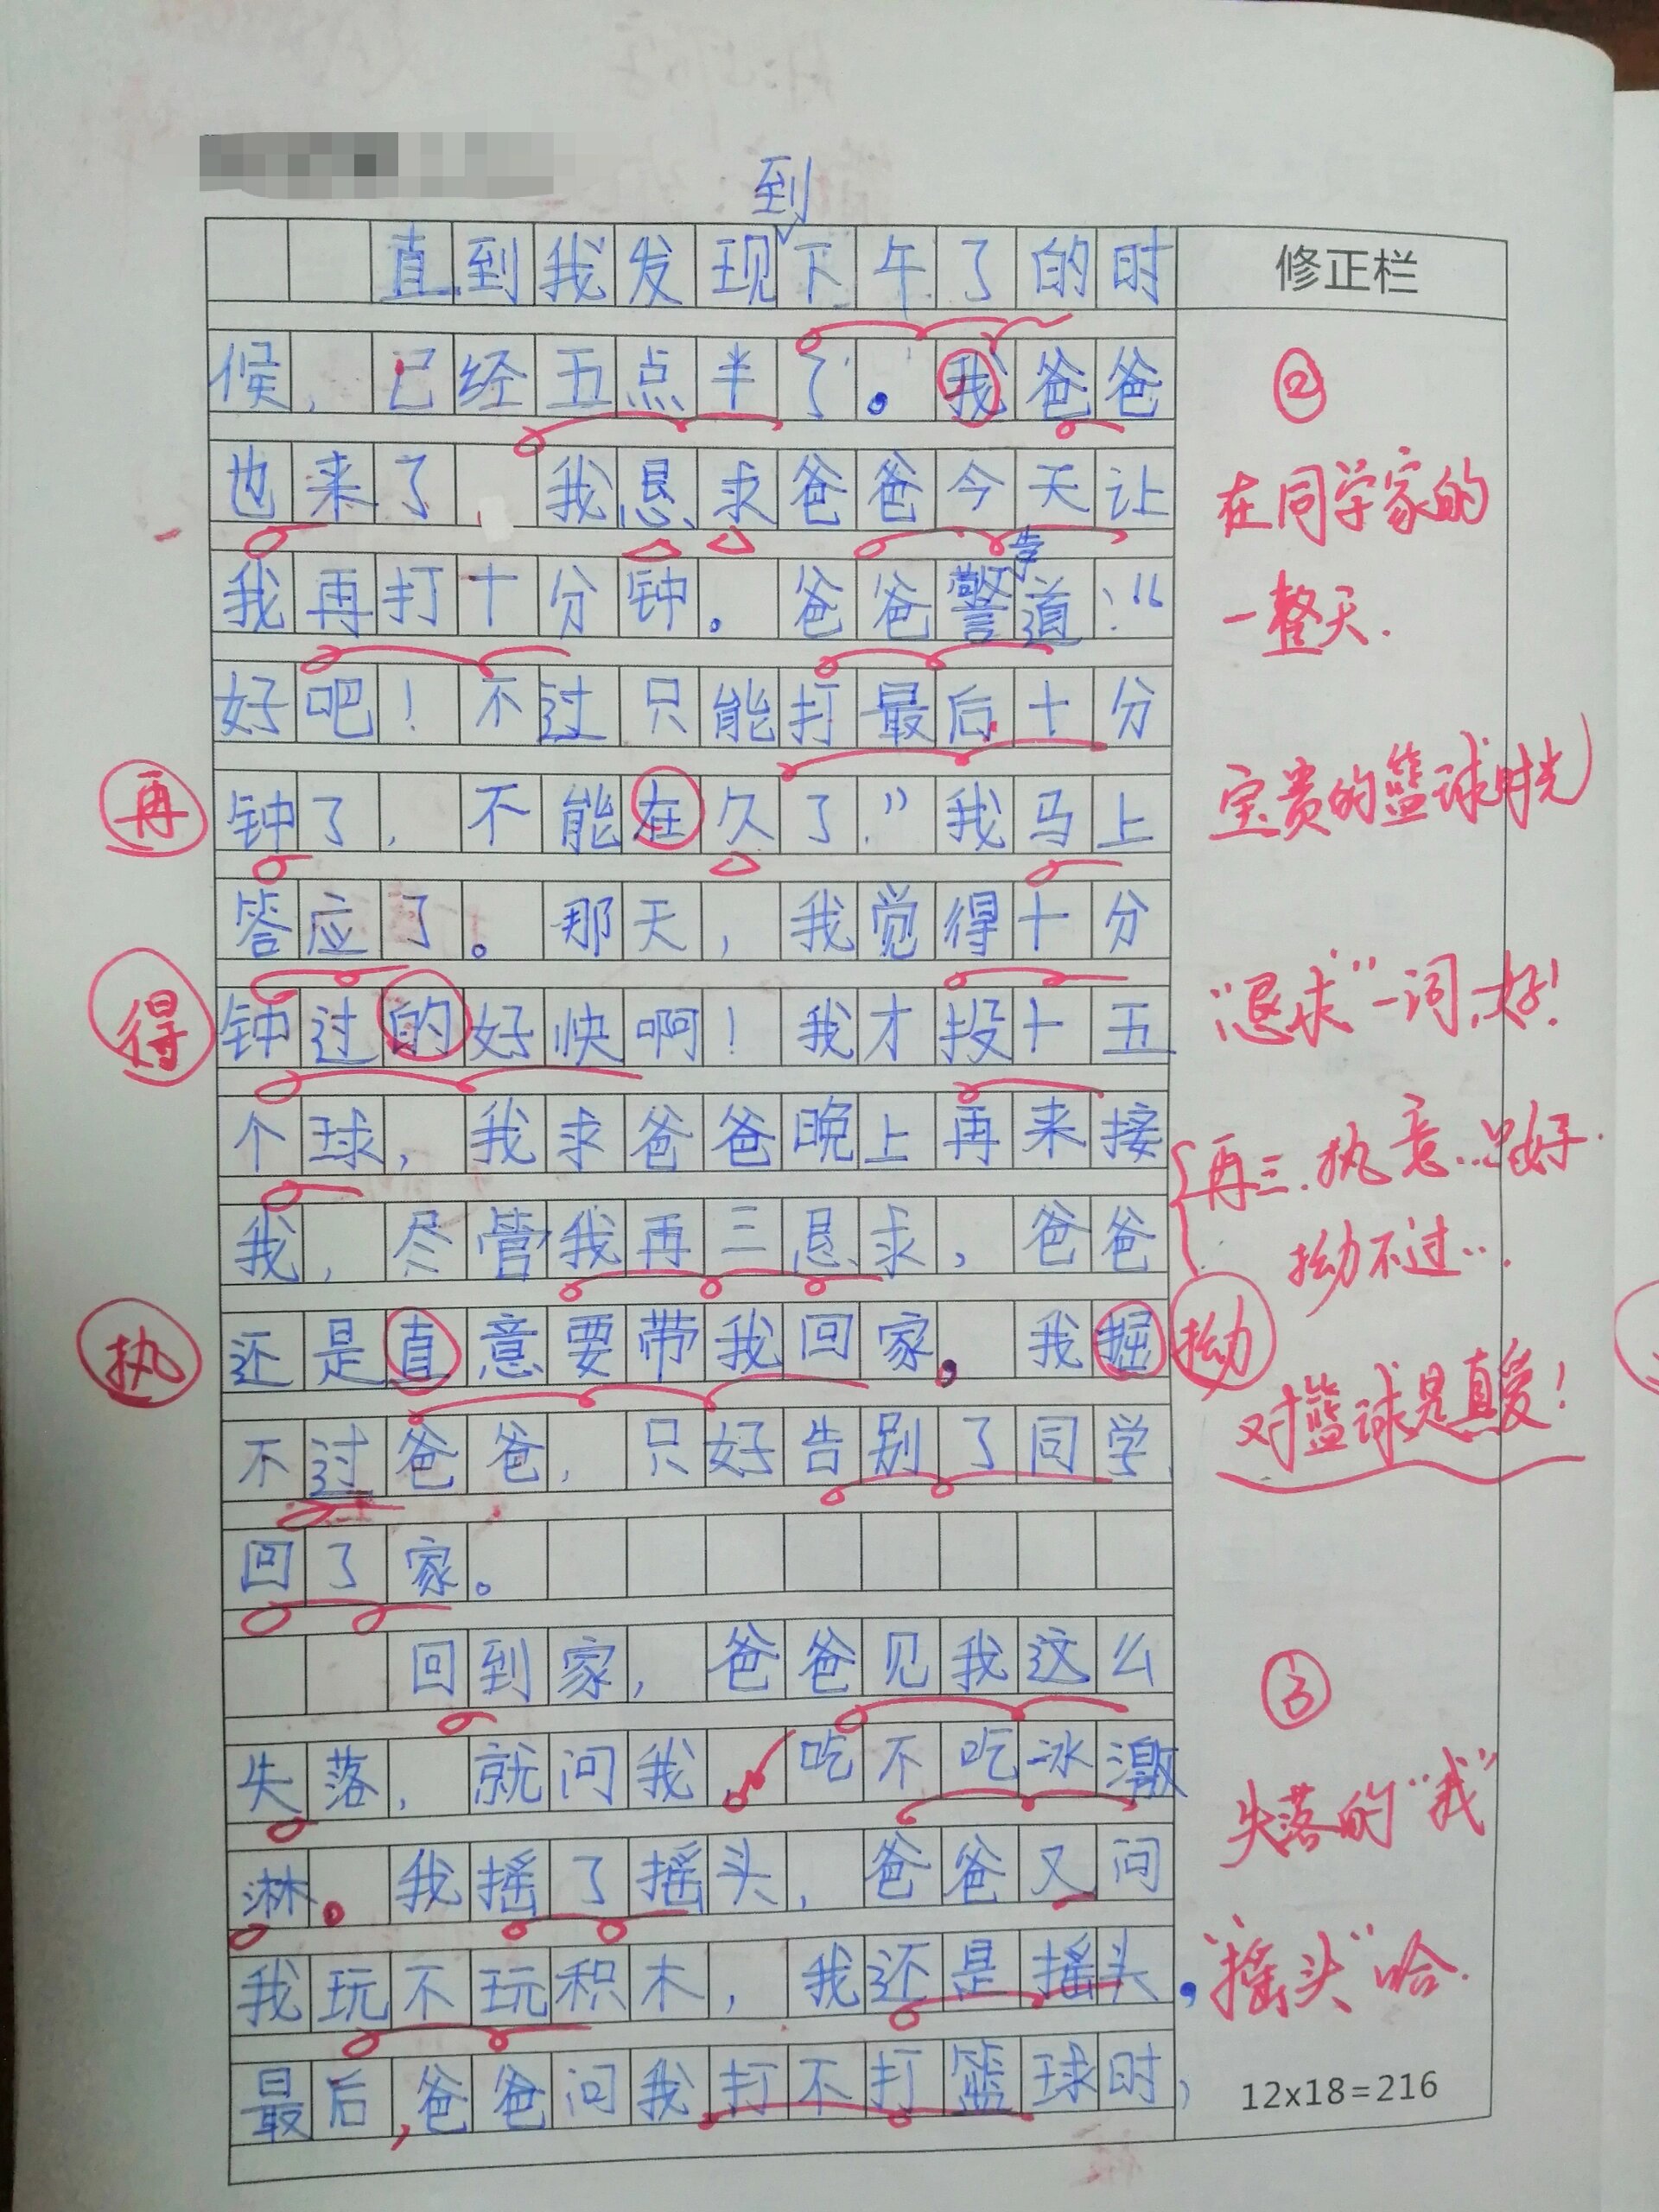 到
直到我发现下午了的时
修正栏
候，已经五点半了。我爸爸
②
也来了，我恳求爸爸今天让
在同学家的
告
我再打十分钟。爸爸警道：“
一整天.
好吧！不过只能打最后十分
再
钟了，不能在久了.”我马上
宝贵的篮球时光
答应了。那天，我觉得十分
得
钟过的好快啊！我才投十五
“恳求”一词，好！
个球，我求爸爸晚上再来接
再三.执意…只好.
我，尽管我再三恳求，爸爸
拗不过…
执
还是直意要带我回家。我掘
拗
对篮球是真爱！
不过爸爸，只好告别了同学，
回了家。
回到家，爸爸见我这么
③
失落，就问我，吃不吃冰激
失落的“我”
淋。我摇了摇头，爸爸又问
我玩不玩积木，我还是摇头，
“摇头”哈.
最后，爸爸问我打不打篮球时，
12x18=216